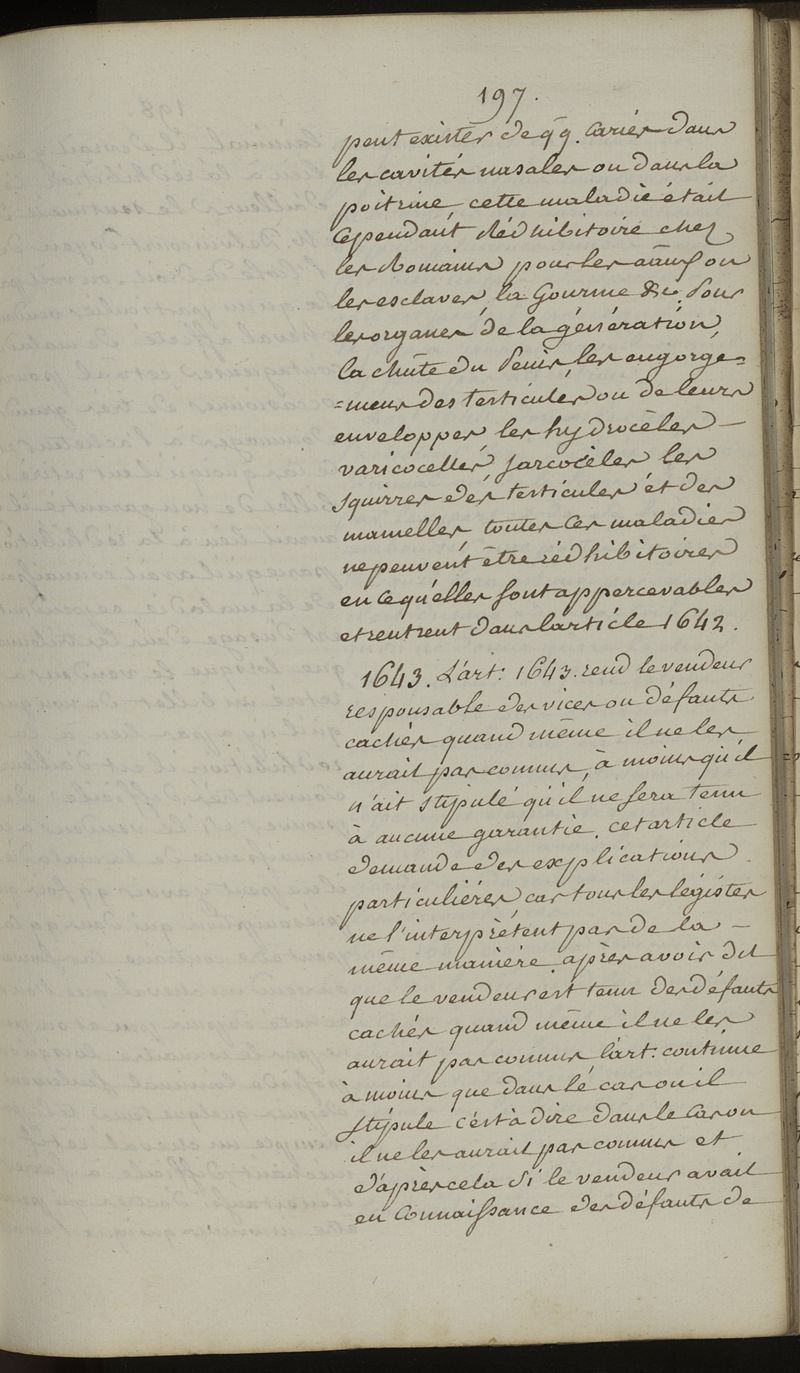 197.
peut exister de qq. caries dans
les cavités nasales ou dans la
poitrine, cette maladie était
cependant Rédhibitoire chez
les Romains pour les
les esclaves, la Gourme &c. Pour
les organes de la génération,
la chûte du Penis, les engorge=
=mens des testicules ou de leurs
enveloppes, les hydrocèles —
varicocelles, sarcocèles les
squirres des testicules et des
mamelles, toutes ces maladies
ne peuvent être rédhibitoires
en ce qu'elles sont appercevables
et rentrent dans l'article 1642.
1643. L'art: 1643. rend le vendeur
responsable des vices ou défauts
cachés quand même il ne les
aurait pas connus, à moins qu'il
n'ait stipulé qu'il ne sera tenu
à aucune garantie. cet article
demande des explications
particulières car tous les légistes
ne l'interprètent pas de la —
même manière. après avoir dit
que le vendeur est tenu des défauts
cachés quand même il ne les
aurait pas connus l'art: continue
à moins que dans le cas ou il
stipule c'est à dire dans le cas ou
il ne les aurait pas connus et
d'après cela Si le vendeur avait
en Connaissance des défauts de